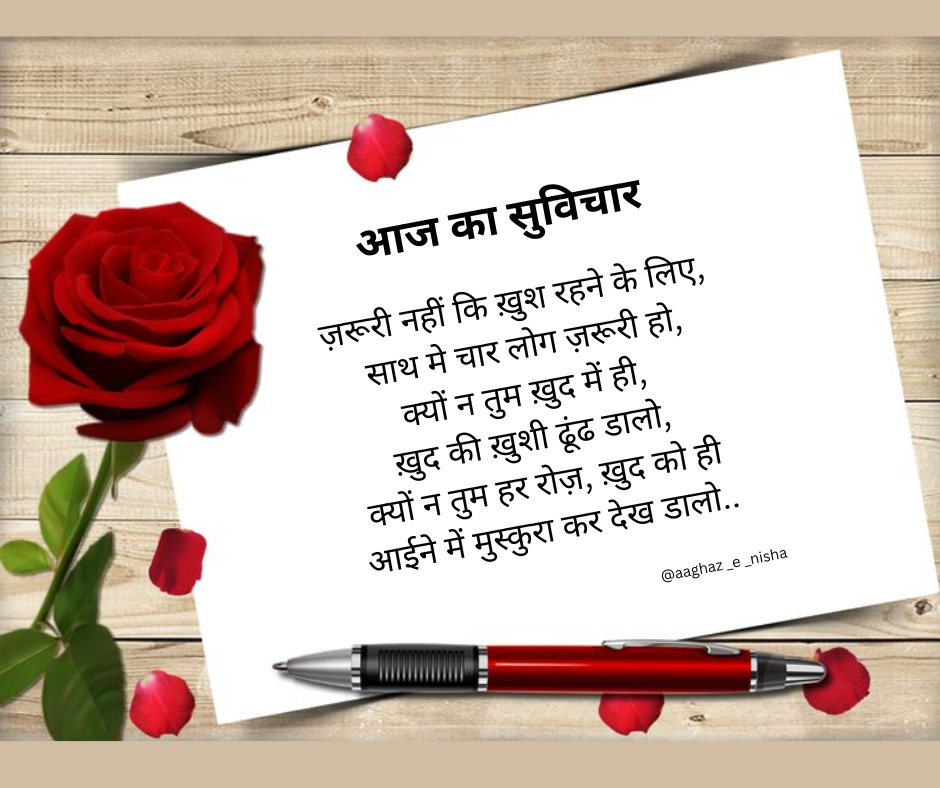 आज का सुविचार
ज़रूरी नहीं कि ख़ुश रहने के लिए,
साथ मे चार लोग ज़रूरी हो,
क्यों न तुम ख़ुद में ही,
ख़ुद की ख़ुशी ढूंढ डालो,
क्यों न तुम हर रोज़, ख़ुद को ही
आईने में मुस्कुरा कर देख डालो..
@aaghaz _e _nisha